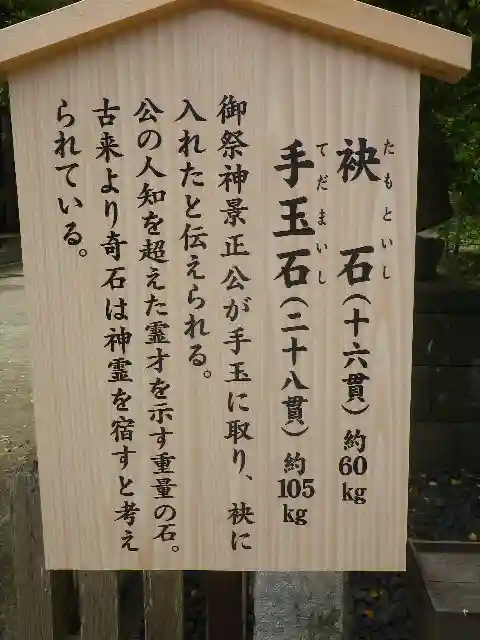 袂石(十六貫) 約60kg
たもといし
手玉石(二十八貫) 約105kg
てだまいし
御祭神景正公が手玉に取り、袂に
入れたと伝えられる。
公の人知を超えた霊才を示す重量の石。
古来より奇石は神霊を宿すと考え
られている。